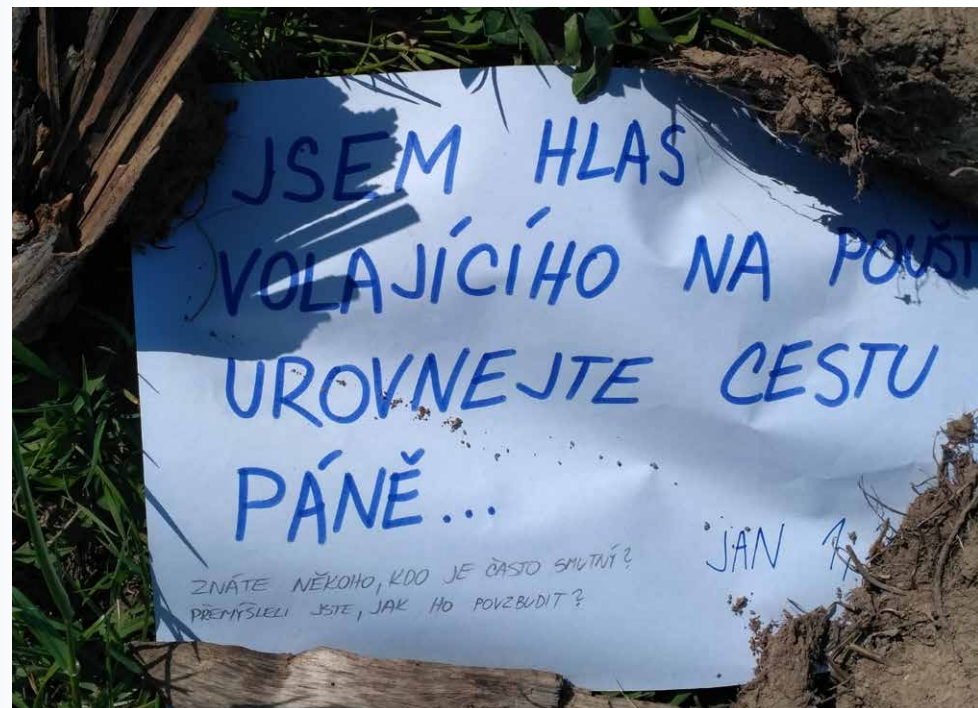 JSEM HLAS
VOLAJÍCÍHO NA POUŠT
UROVNEJTE CESTU
PÁNĚ...
JAN 1,
ZNÁTE NĚKOHO, KDO JE ČASTO SMUTNÝ?
PŘEMÝŠLELI JSTE, JAK HO POVZBUDIT?